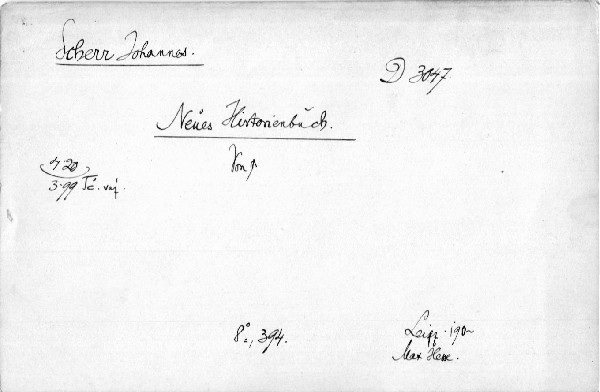 Scherr Johannes.
D 3047
Neues Historienbuch.
Von J.
420
3·99
8°, 394.
Leipz. 190
Max Hesse.